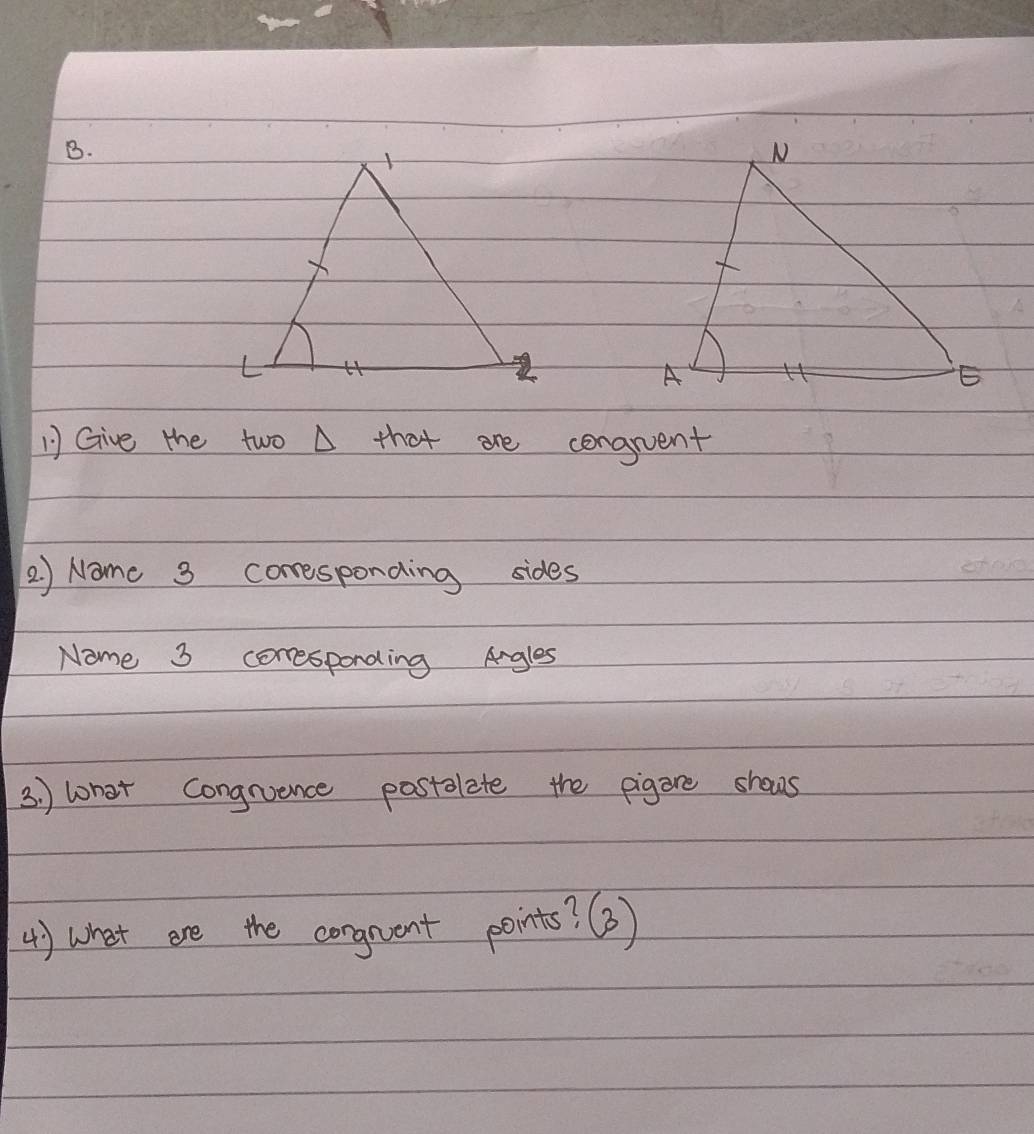 B.
I N
L Z A E
1.) Give the two Δ that are congruent
2.) Name 3 corresponding sides
Name 3 corresponding Angles
3.) What Congruence postalate the pigare shows
4.) What are the congruent points? (3)